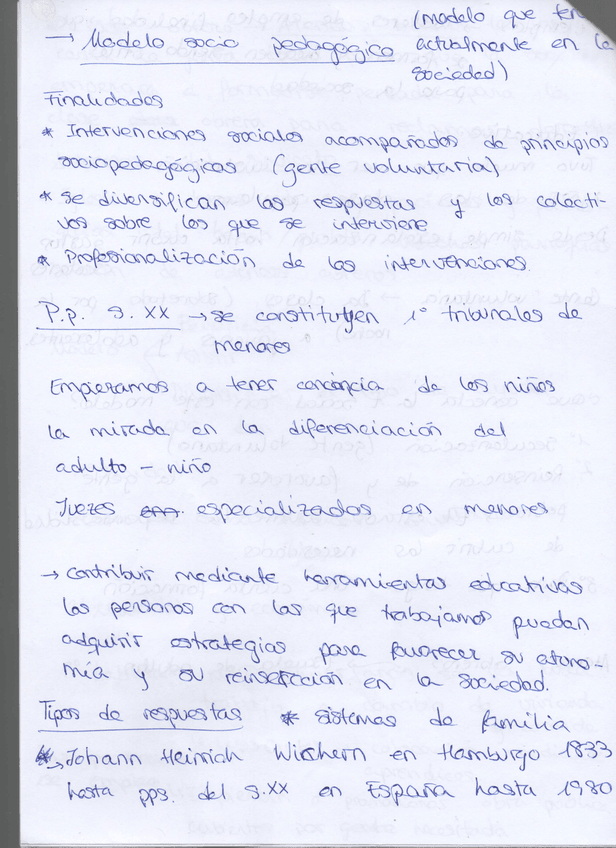 (modelo que ten
→ Modelo socio pedagógico actualmente en la
sociedad)
Finalidades
* Intervenciones sociales acompañadas de principios
sociopedagógicas (gente voluntaria)
* se diversifican las respuestas y los colecti-
vos sobre los que se interviene
* Profesionalización de las intervenciones.
P.p. S. XX → se constituyen 1º tribunales de
menores
Empezamos a tener conciencia de los niños
la mirada en la diferenciación del
adulto – niño
Juezes especializados en menores
→ contribuir mediante herramientas educativas
las personas con las que trabajamos puedan
adquirir estrategias para favorecer su atono-
mía y su reinserción en la sociedad.
Tipos de respuestas * sistemas de familia
→ Johann Heinrich Wichern en Hamburgo 1833
hasta pps. del S.XX en España hasta 1980